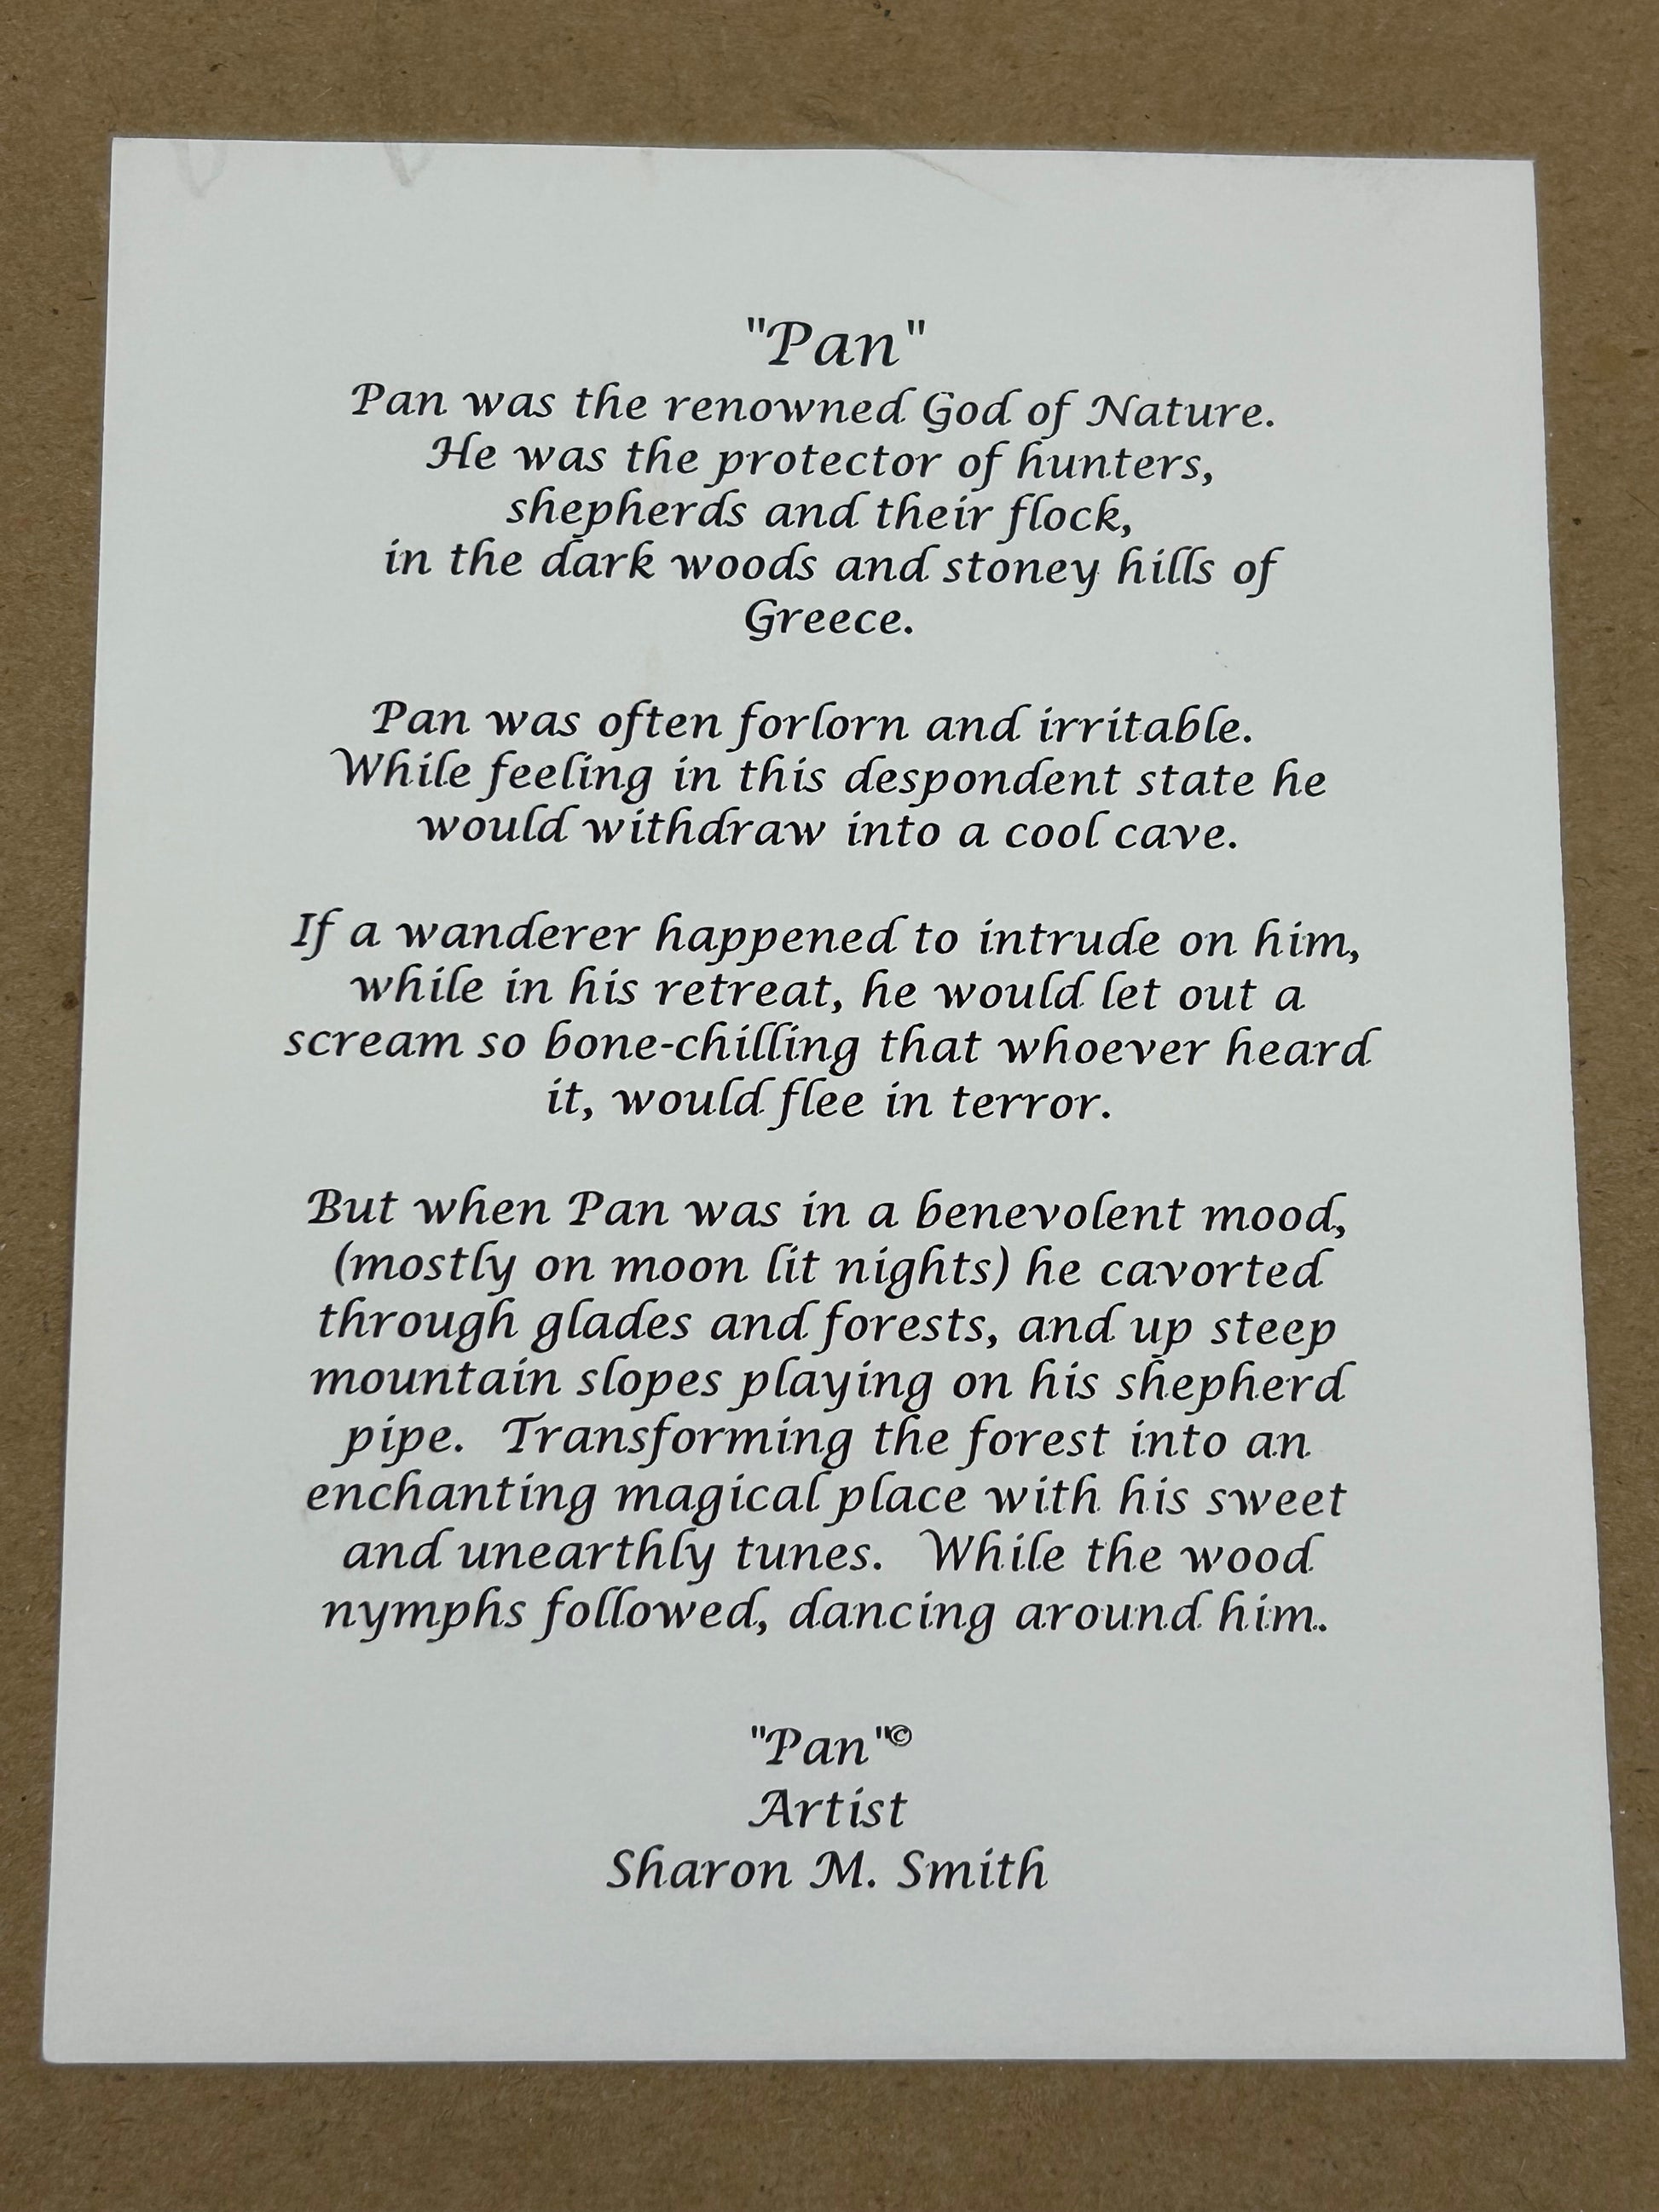 "Pan"
Pan was the renowned God of Nature.
He was the protector of hunters,
shepherds and their flock,
in the dark woods and stoney hills of
Greece.
Pan was often forlorn and irritable.
While feeling in this despondent state he
would withdraw into a cool cave.
If a wanderer happened to intrude on him,
while in his retreat, he would let out a
scream so bone-chilling that whoever heard
it, would flee in terror.
But when Pan was in a benevolent mood,
(mostly on moon lit nights) he cavorted
through glades and forests, and up steep
mountain slopes playing on his shepherd
pipe.  Transforming the forest into an
enchanting magical place with his sweet
and unearthly tunes.  While the wood
nymphs followed, dancing around him.
"Pan"©
Artist
Sharon M. Smith